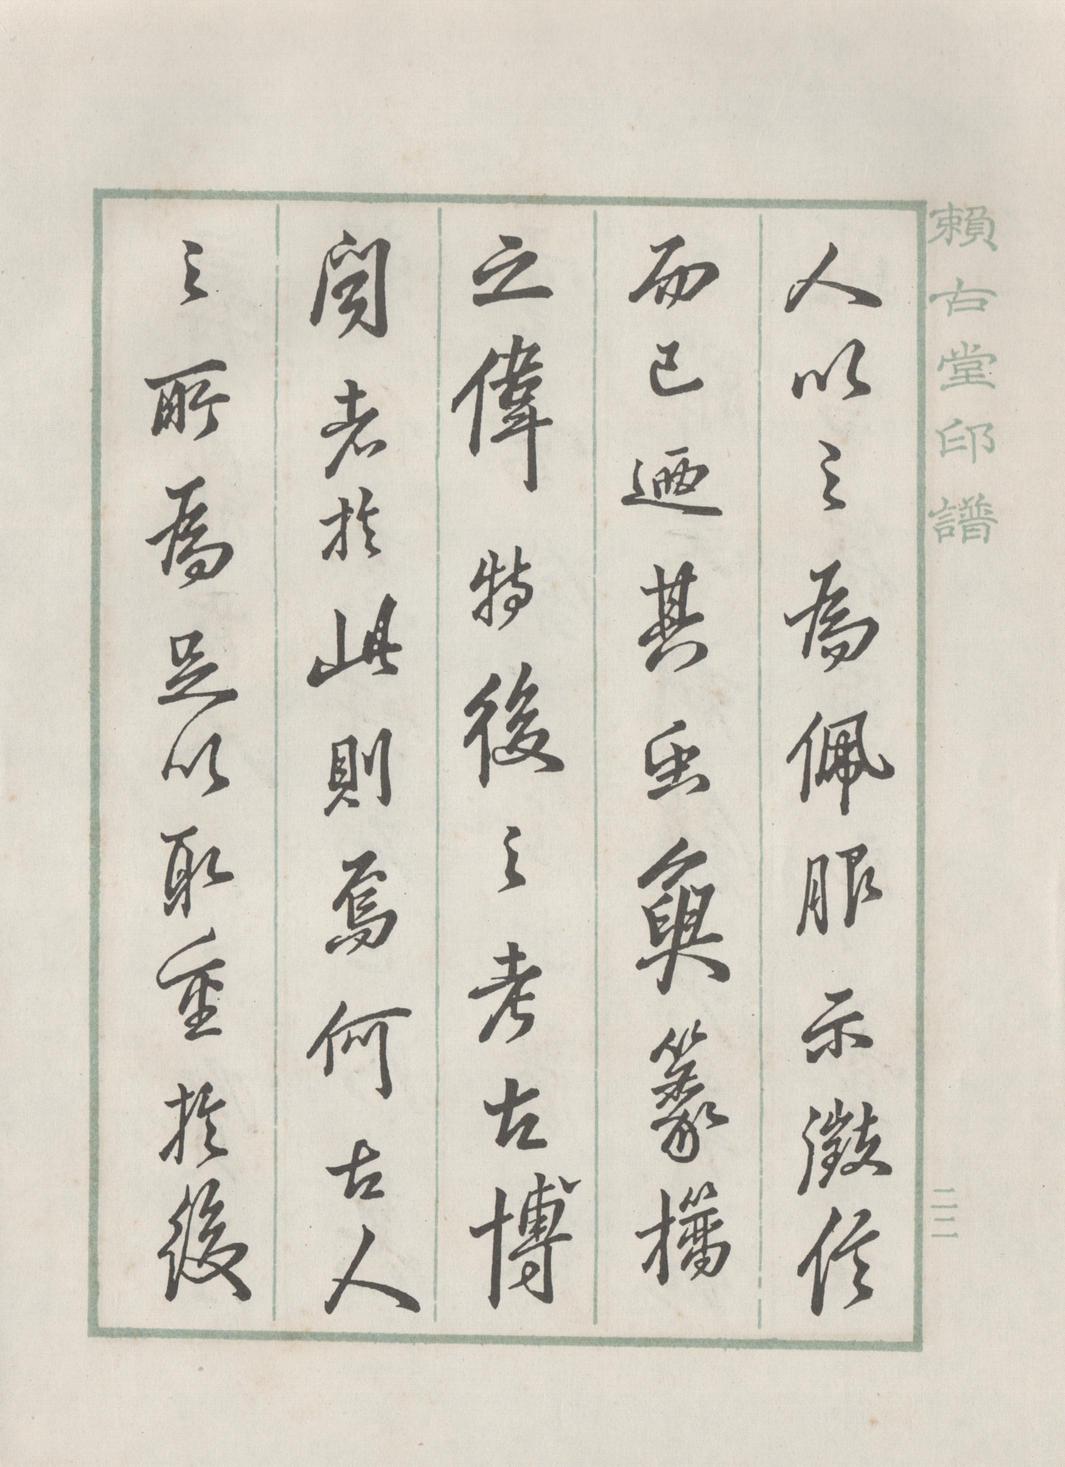 賴古堂印譜
人以之為佩服示徵信
而已迺其垂奐篆搢
立偉特後之考古博
聞者於此則焉何古人
之所為足以取重於後
二二